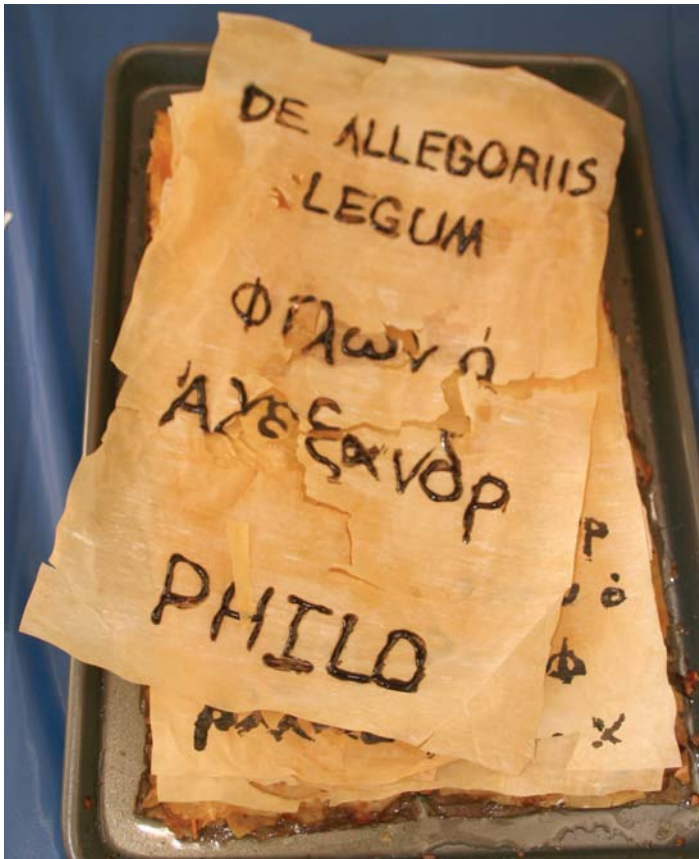 DE ALLEGORIIS
LEGUM
Φίλων ὁ
Ἀλεξανδρ
PHILO